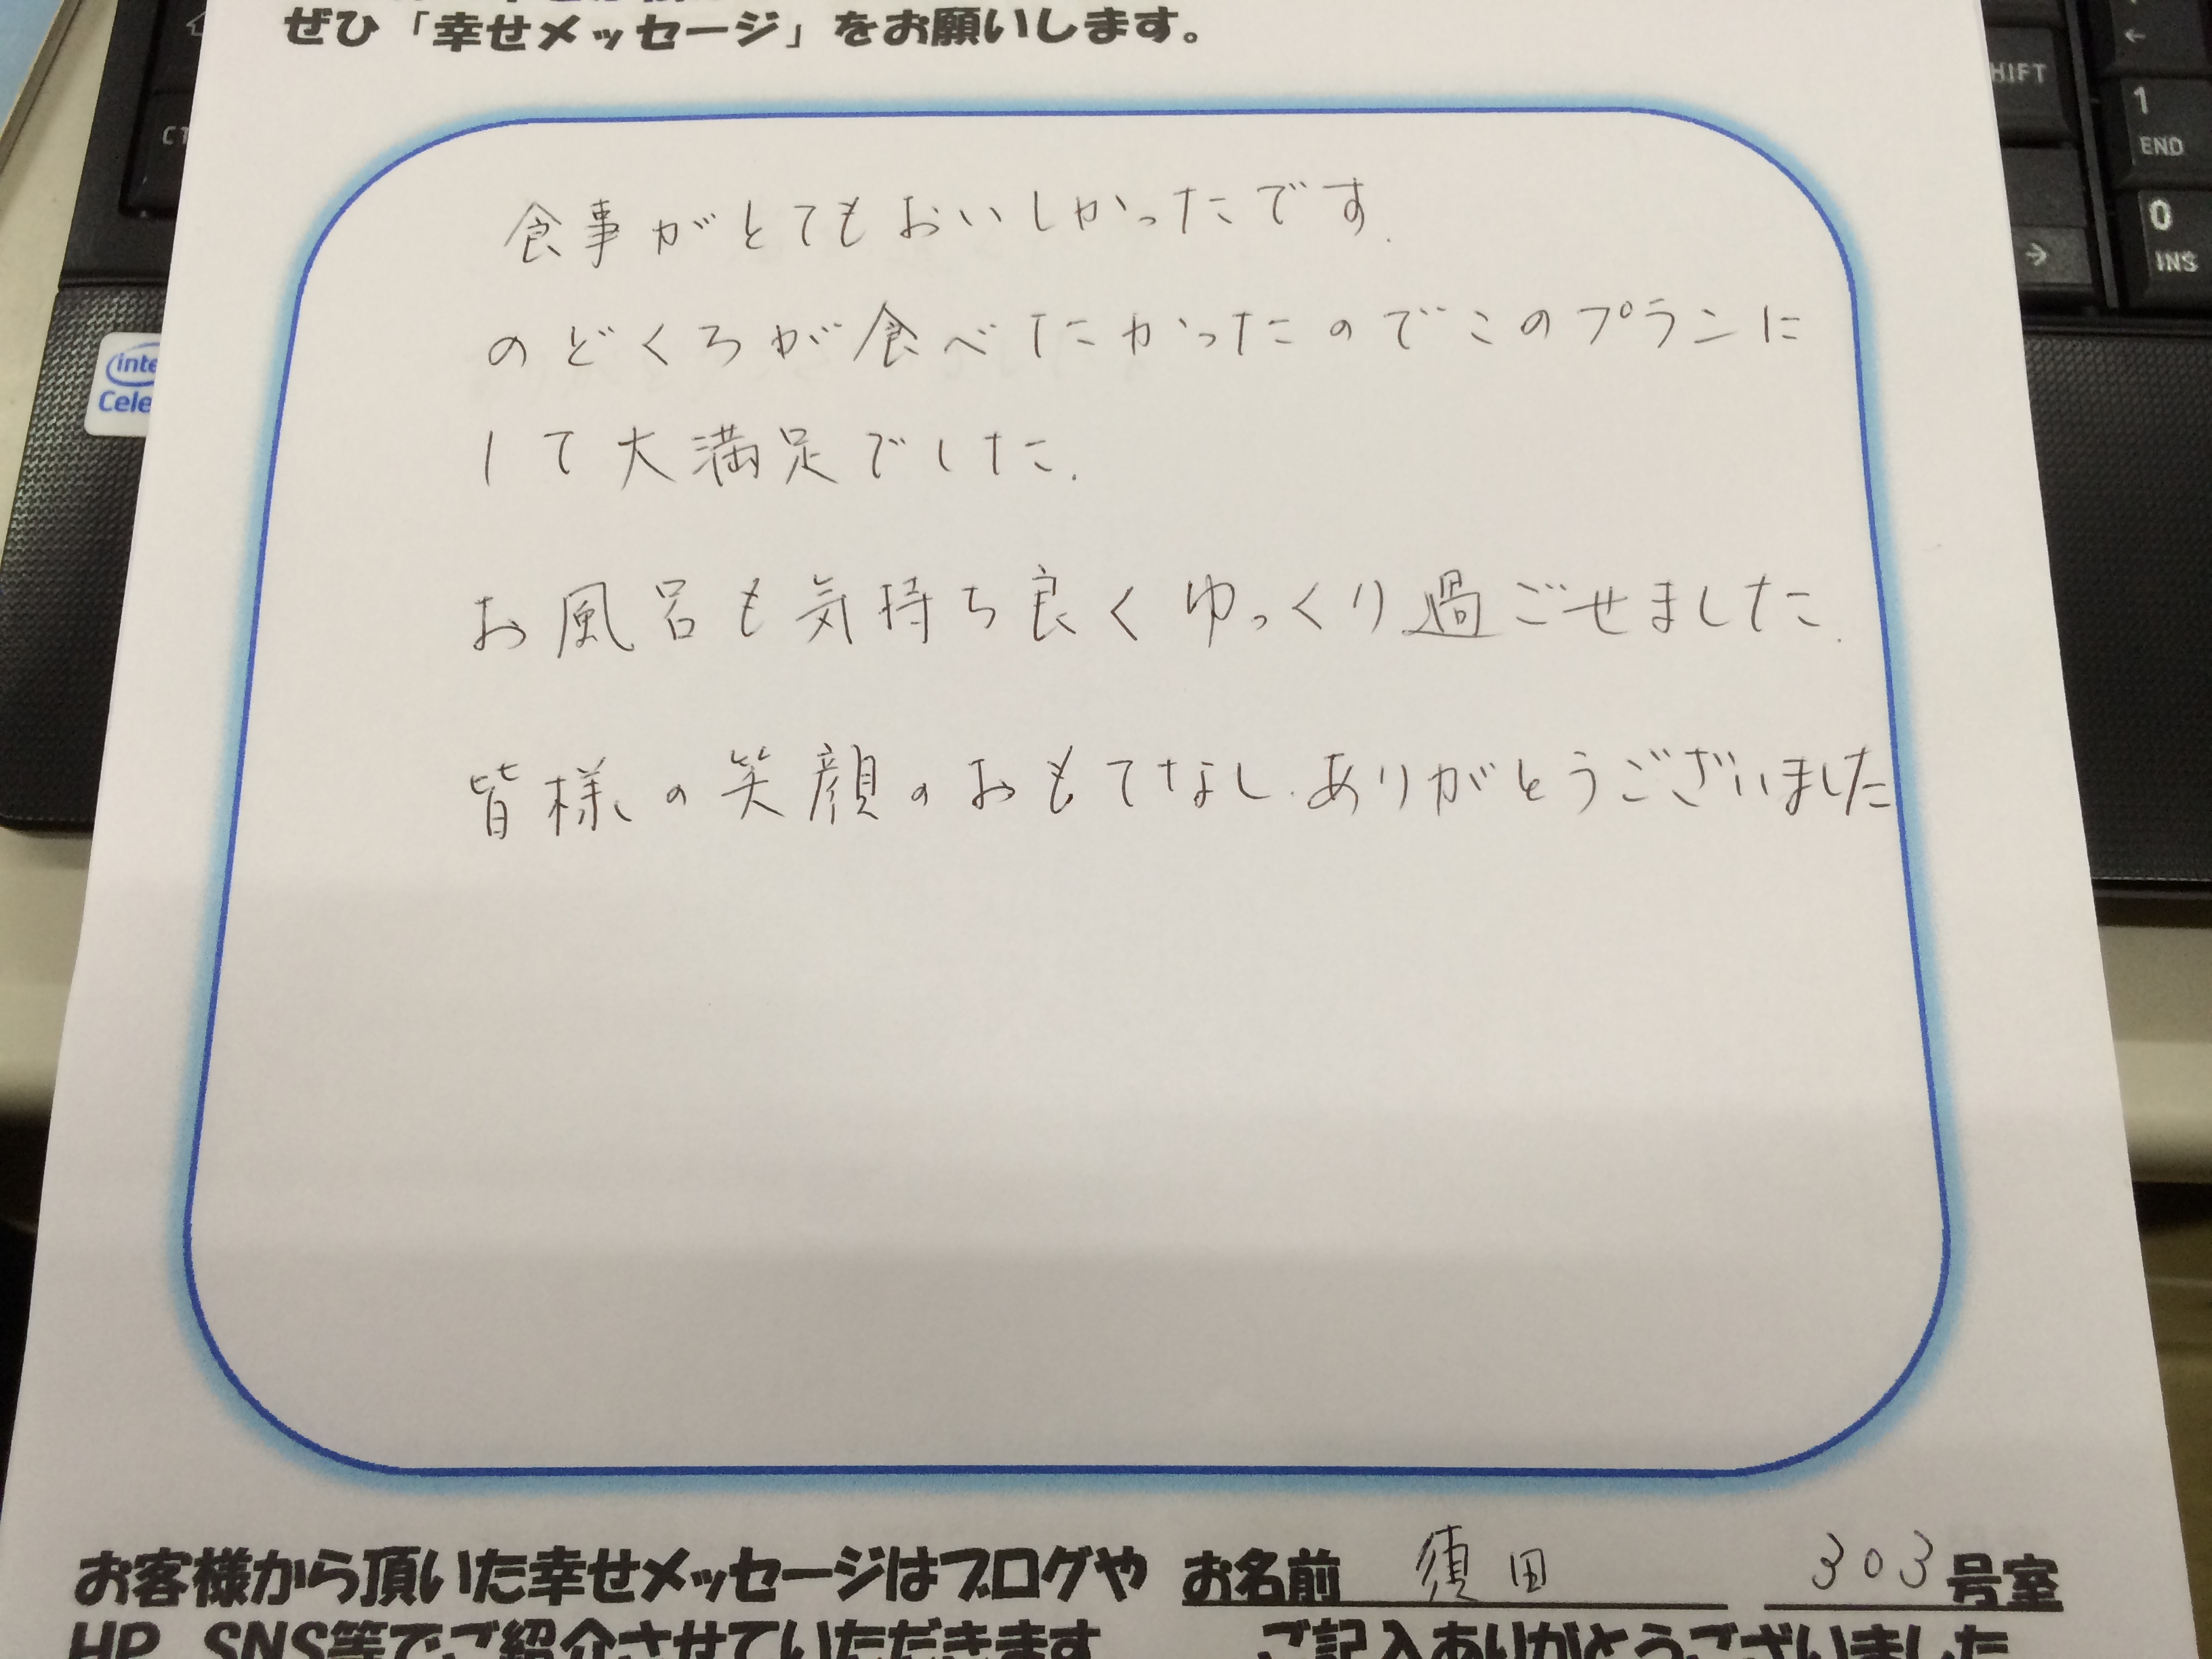 ぜひ「幸せメッセージ」をお願いします。
食事がとてもおいしかったです.
のどくろが食べたかったのでこのプランに
して大満足でした.
お風呂も気持ち良くゆっくり過ごせました.
皆様の笑顔のおもてなし.ありがとうございました
お客様から頂いた幸せメッセージはブログや
HP SNS等でご紹介させていただきます
お名前 須田 303号室
ご記入ありがとうございました
SHIFT
←
1
END
0
INS
→